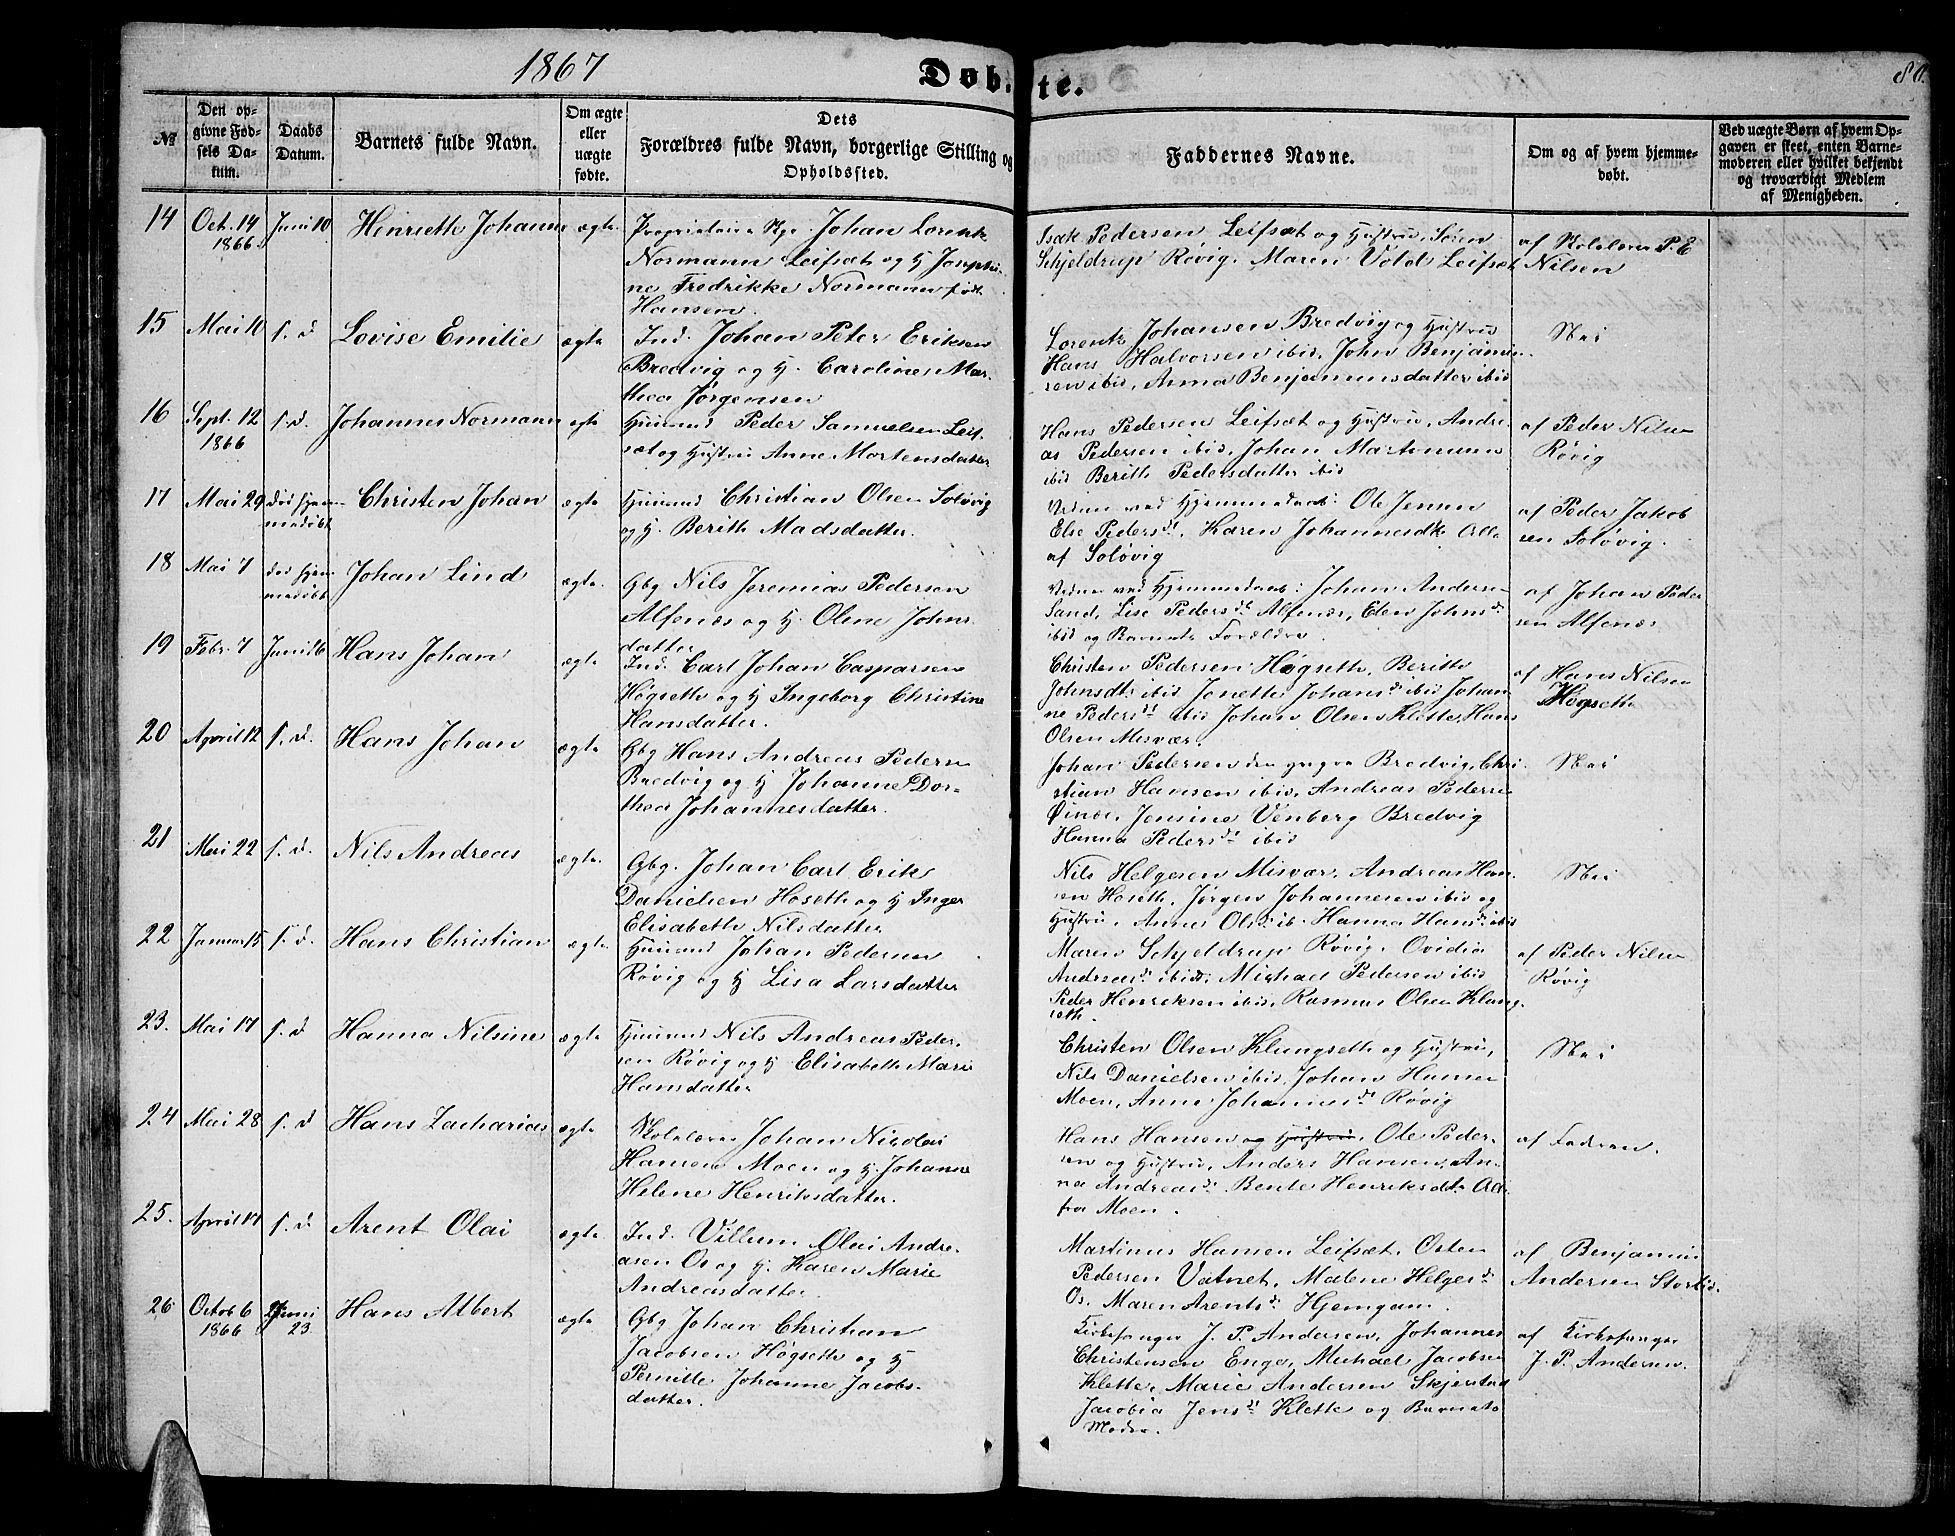 1867
Døbte.
80.
№
Den op-
givne Fød-
sels Da-
tum.
Daabs
Datum.
Barnets fulde Navn.
Om ægte
eller
uægte
fødte.
Dets
Forældres fulde Navn, borgerlige Stilling og
Opholdssted.
Faddernes Navne.
Om og af hvem hjemme-
døbt.
Ved uægte Børn af hvem Op-
gaven er skeet, enten Barne-
moderen eller hvilket bekjendt
og troværdigt Medlem
af Menigheden.
14 Oct. 14 1866 Juni 10 Henriette Johanne ægte
Proprietair Johan Lorentz
Normann Leifsæt og H Josephi-
ne Fredrikke Normann født
Hansen.
Isak Pedersen Leifsæt og Hustru, Søren
Schjeldrup Røvig, Maren Vold Leifsæt
af Skolelærer P. E
Nilsen
15 Mai 10 s. d Lovise Emilie ægte
Ind. Johan Peter Eriksen
Bredvig og H. Caroline Mar-
thea Jørgensen
Lorentz Johansen Bredvig og Hustru
Hans Halvorsen ibid, John Benjamin-
sen ibid, Anna Benjaminsdatter ibid
Nei
16 Sept. 12 1866 s. d. Johannes Normann ægte
Huusmd Peder Samuelsen Leif-
sæt og Hustru Anne Mortensdatter
Hans Pedersen Leifsæt og Hustru, Andre-
as Pedersen ibid, Johan Martinussen
ibid Berith Pedersdatter ibid
af Peder Nilsen
Røvig
17 Mai 29 død hjem-
medøbt Christen Johan ægte
Huusmd Christian Olsen Soløvig
og H. Berith Madsdatter.
Vidner ved Hjemmedaab: Ole Jensen
Else Pedersdt, Karen Johannesdt Alle
af Soløvig
af Peder Jakob
sen Soløvig.
18 Mai 7 død hjem-
medøbt Johan Lind ægte
Gbg Nils Jeremias Pedersen
Alfenæs og H. Oline Johns
datter
Vidner ved Hjemmedaab: Johan Andersen
Sand, Lise Pedersdt Alfenæs, Elen Johnsd
ibid og Barnets Forældre.
af Johan Peder
sen Alfenæs
19 Febr. 7 Juni 16 Hans Johan ægte
Ind. Carl Johan Caspersen
Høgseth og H Ingeborg Christine
Hansdatter.
Christen Pedersen Høgseth, Berith
Johnsdt ibid Jonette Johansd ibid Johan-
ne Pedersdt ibid Johan Olsen Klette, Hans
Olsen Misvær.
af Hans Nilsen
Høgseth
20 April 12 s. d. Hans Johan ægte
Gbg Hans Andreas Pedersen
Bredvig og H Johanne Dor-
thea Johannesdatter.
Johan Pedersen den yngre Bredvig, Chri-
stian Hansen ibid, Andreas Pedersen
Øines, Jensine Venberg Bredvig
Hanna Pedersdt ibid
Nei
21 Mai 22 s. d. Nils Andreas ægte
Gbg. Johan Carl Erik
Danielsen Hoseth og H Inger
Elisabeth Nilsdatter
Nils Helgesen Misvær, Andreas Han-
sen Hoseth, Jørgen Johannesen ibid og
Hustru, Anne Olsd ib. Hanna Hansdt ibid
Nei
22 Januar 15 s. d. Hans Christian ægte
Huusmd Johan Pedersen
Røvig og H Lisa Larsdatter
Maren Schjeldrup Røvig, Ovidia
Andreasdt ibid, Michael Pedersen ibid
Peder Henriksen ibid, Rasmus Olsen Klung-
seth.
af Peder Nilsen
Røvig
23. Mai 17 s. d Hanna Nilsine ægte
Huusmd Nils Andreas Peder-
sen Røvig og H Elisabeth Marie
Hansdatter
Christen Olsen Klungseth og Hustru,
Nils Danielsen ibid, Johan Hansen
Moen, Anne Johannesdt Røvig
Nei
24 Mai 28 s. d Hans Zacharias ægte
Skolelærer Johan Nicolai
Hansen Moen og H. Johanne
Helene Henriksdatter.
Hans Hansen og Hustru, Ole Peder-
sen og Hustru, Anders Hansen, An-
na Andreasdt. Bente Henriksdt Alle
fra Moen.
af Faderen.
25. April 14 s. d Arent Olai ægte
Ind. Villum Olai Andre-
asen Os og H. Karen Marie
Andreasdatter.
Martinus Hansen Leifsæt, Osten
Pedersen Vatnet, Malene Helgesd
Os. Maren Arentsdt Hjemgam.
af Benjamin
Andersen Storlid.
26 Octob 6 1866 Juni 23 Hans Albert ægte
Gbg Johan Christian
Jacobsen Høgseth og H
Pernille Johanne Jacobs-
datter.
Kirkesanger J. P. Andersen, Johannes
Christensen Enge, Michael Jacobsen
Klette, Marie Andersen Skjerstad
Jacobia Jensdt Klette og Barnets
Moder.
af Kirkesanger
J. P. Andersen.